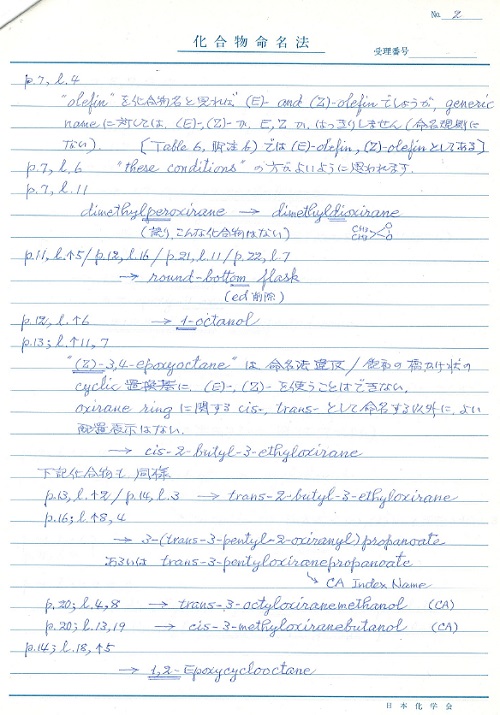 No. 2
化合物命名法
受理番号
p.7, l.4
"olefin" を化合物名と見れば (E)- and (Z)-olefin でしょうが, generic
name に対しては, (E)-, (Z)- か, E, Z か, はっきりしません (命名規則に
ない). [Table 6, 脚注 6) では (E)-olefin, (Z)-olefin としてある]
p.7, l.6 "these conditions" の方がよいように思われます.
p.7, l.11
dimethylperoxirane → dimethyldioxirane
(誤り, こんな化合物はない) CH3 CH3 O O
p.11, l.↑5 / p.12, l.16 / p.21, l.11 / p.22, l.7
→ round-bottom flask
(ed 削除)
p.12, l.↑6 → 1-octanol
p.13; l.↑11, 7
"(Z)-3,4-epoxyoctane" は 命名法違反 / 橋かけ状の
cyclic 置換基に, (E)-, (Z)- を使うことはできない.
oxirane ring に関する cis-, trans- として命名する以外に, よい
配置表示はない.
→ cis-2-butyl-3-ethyloxirane
下記化合物も 同様
p.13, l.↑2 / p.14, l.3 → trans-2-butyl-3-ethyloxirane
p.16; l.↑8, 4
→ 3-(trans-3-pentyl-2-oxiranyl)propanoate
あるいは trans-3-pentyloxiranepropanoate
CA Index Name
p.20; l.4, 8 → trans-3-octyloxiranemethanol (CA)
p.20; l.13, 19 → cis-3-methyloxiranebutanol (CA)
p.14; l.18, ↑5
→ 1,2-Epoxycyclooctane
日本化学会